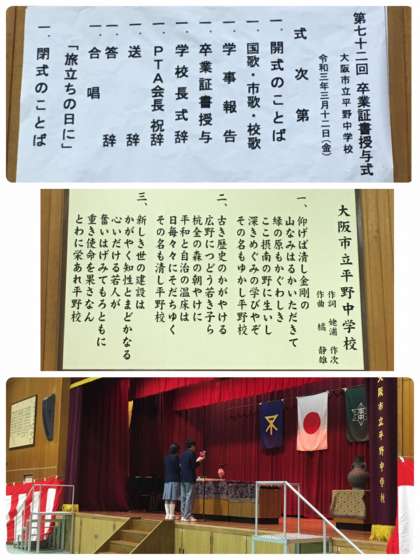 第七十二回 卒業証書授与式
大阪市立平野中学校
令和三年三月十二日(金)
式次第
一.開式のことば
一.国歌・市歌・校歌
一.学事報告
一.卒業証書授与
一.学校長式辞
一.PTA会長祝辞
一.送辞
一.答辞
一.合唱
「旅立ちの日に」
一.閉式のことば
大阪市立平野中学校
作詞 姥浦 作次
作曲 橘 静雄
一、仰げば清し金剛の
山なみはるかいただきて
緑の原もかぐわしき
ここ摂南の野に生いし
深きめぐみの学びやぞ
その名もゆかし平野校
二、古き歴史のかがやける
広野につどう若き子ら
杭全の森の朝やけに
平和と自治の温床は
日毎々々にそだちゆく
その名も清し平野校
三、新しき世の建設は
かがやく知性とまどかなる
心いだける若人が
奮いはげみてもろともに
重き使命を果さなん
とわに栄あれ平野校
大阪市立平野中学校